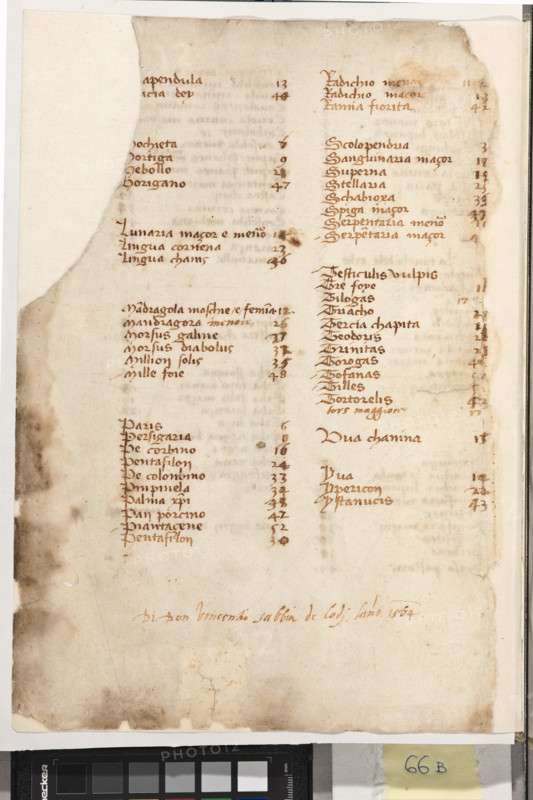 apendula 13
icia der 44
ochieta 6
ortiga 9
ebollo
origano 47
Lunaria maçor e meno
Lingua corneña 23
Lingua chanis 46
Mãdragola maschie e femia 12
Mandragora menore 26
Morsus galine 27
Morsus diabolus 32
Million solis 35
Mille foie 48
Paris 6
Persigaria 9
Pe corbino 16
Pentafilon 24
Pe colonbino 33
Pinpinela 34
Palma xpi 38
Pan porcino 42
Piantacene 52
Pentafilon 30
Radichio menor
Radichio maçor
Ranna fiorita 42
Scolopendria 3
Sanguinaria maçor 17
Superna
Stellaria 25
Schabioxa 39
Spiga maçor
Serpentaria meno
Serpẽtaria maçor
Testiculis vulpis
Tre foye 11
Tilogas 17
Triacho
Tercia chapita
Teodoris
Trinitas
Torogas
Tofanas
Tilles
Tortorelis
tors maggior
Vua chanina 15
Yua 14
Ypericon 22
Ystanucis 43
Di Don Vincenzo sabbia de Lodj 1564
PHOTO12
66 B